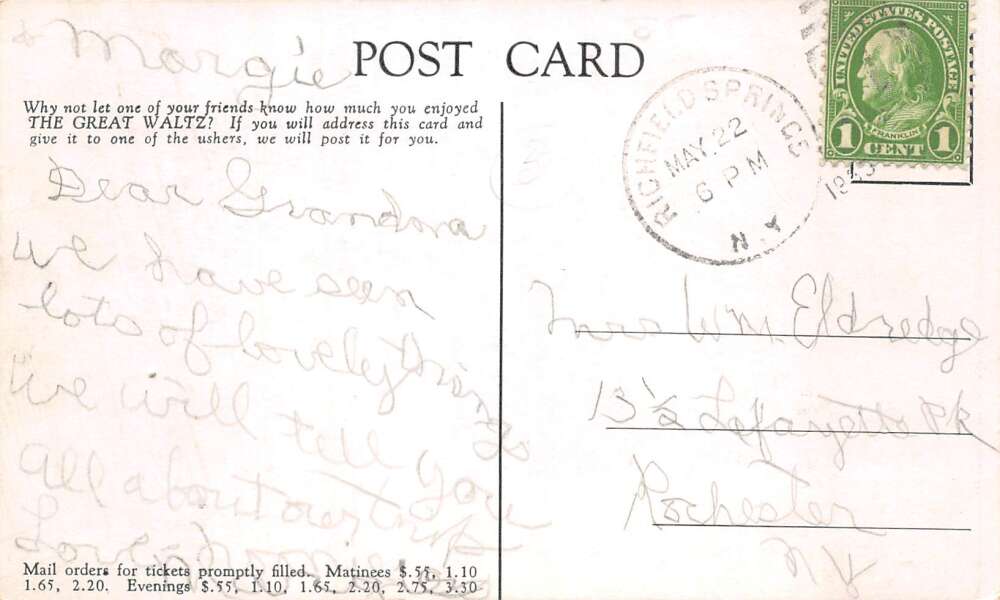 & Margie
POST CARD
Why not let one of your friends know how much you enjoyed
THE GREAT WALTZ? If you will address this card and
give it to one of the ushers, we will post it for you.
Dear Grandma
We have seen
lots of lovely things
We will tell you
all about our trip
Love
Mail orders for tickets promptly filled. Matinees $.55, 1.10
1.65, 2.20. Evenings $.55, 1.10, 1.65, 2.20, 2.75, 3.30
RICHFIELD SPRINGS
MAY. 22
6 PM
N.Y.
UNITED STATES POSTAGE
FRANKLIN
1 CENT 1
Mrs Wm. Eldredge
13½ Lafayette Pk
Rochester
N Y